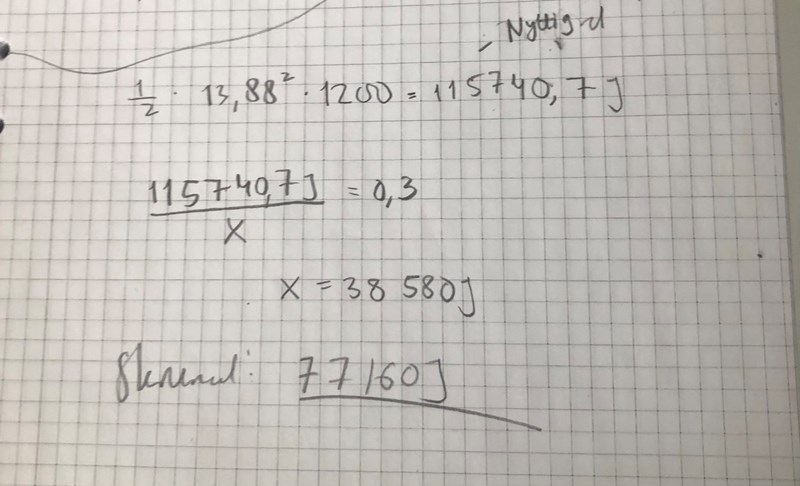 Nyttig d
1/2 · 13,88² · 1200 = 115740,7 J
115740,7 J / X = 0,3
X = 38 580 J
77160 J